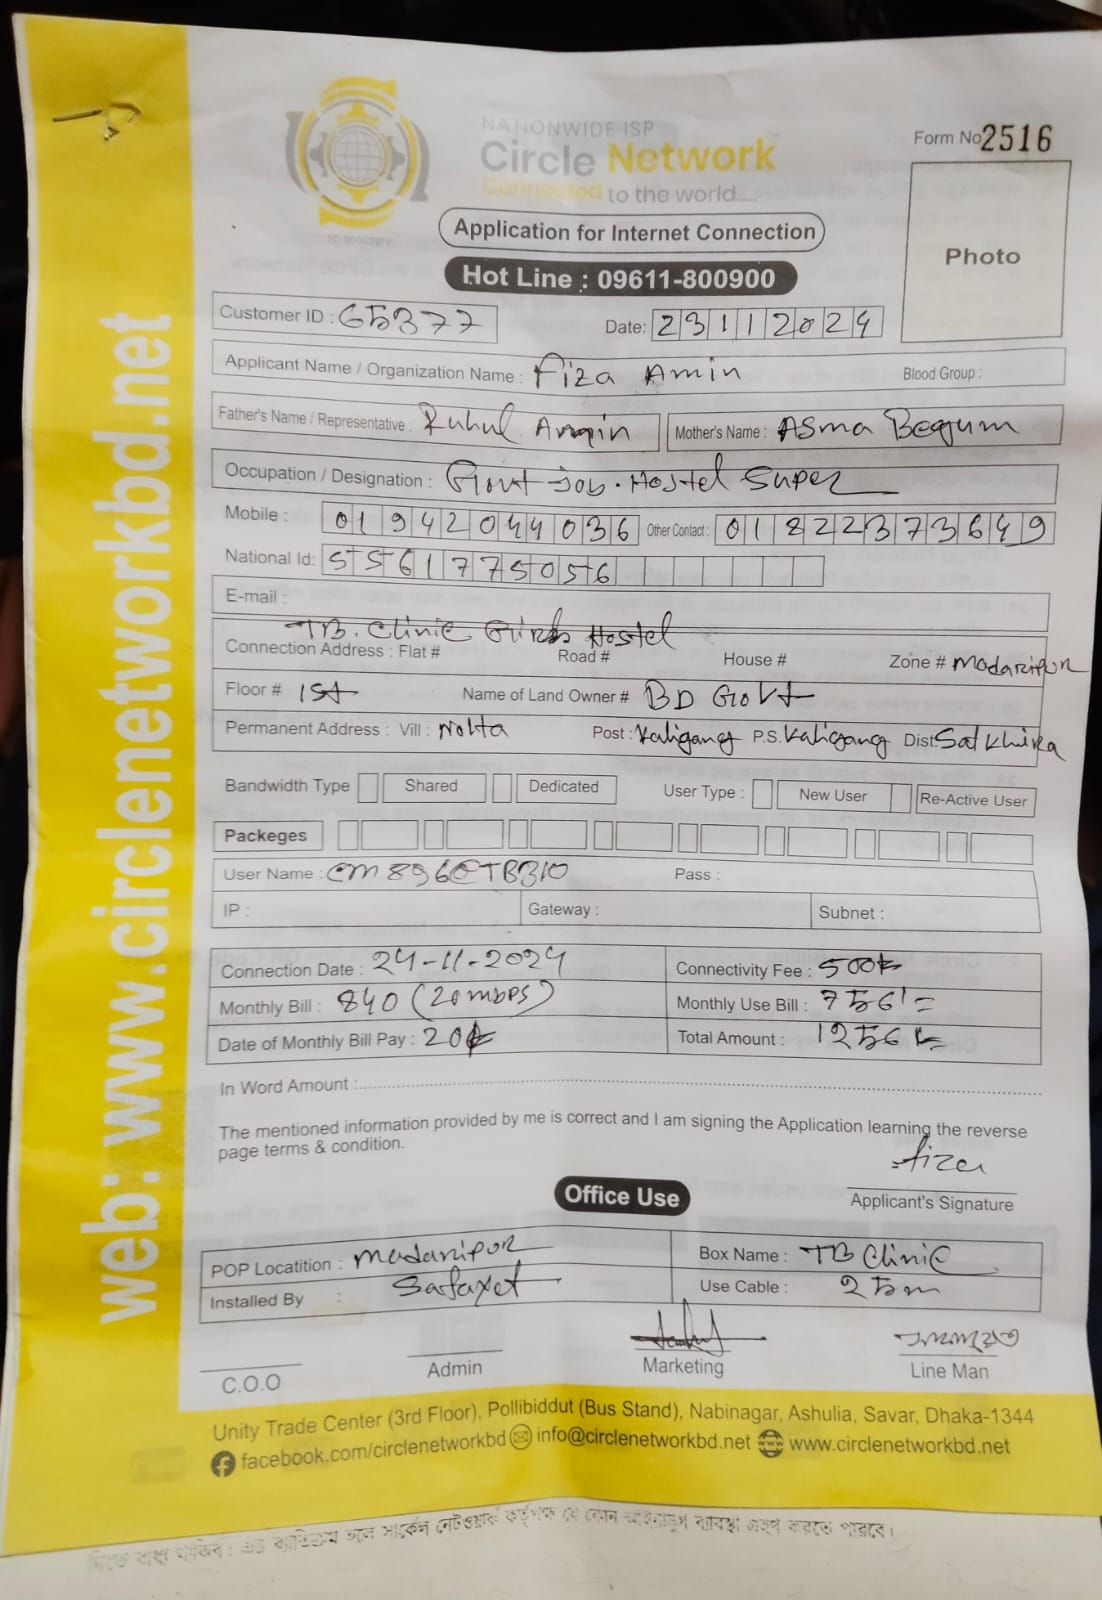 NATIONWIDE ISP
Circle Network
Connected to the world....
Form No 2516
Photo
Application for Internet Connection
Hot Line : 09611-800900
Customer ID : 65377
Date: 23112024
Applicant Name / Organization Name : Fiza Amin Blood Group :
Father's Name / Representative : Ruhul Amin Mother's Name : ASma Begum
Occupation / Designation : Govt Job. Hostel Super
Mobile : 01942044036 Other Contact : 01822373649
National Id: 5561775056
E-mail :
TB. Clinic Girls Hostel
Connection Address : Flat # Road # House # Zone # Madaripur
Floor # 1st Name of Land Owner # BD Govt
Permanent Address : Vill : Nolta Post : Kaligang P.S. Kaligang Dist: Satkhira
Bandwidth Type Shared Dedicated User Type : New User Re-Active User
Packeges
User Name : Pass :
IP : Gateway : Subnet :
Connection Date : 24-11-2024 Connectivity Fee : 500
Monthly Bill : 840 (20mbps) Monthly Use Bill : 756/=
Date of Monthly Bill Pay : 20 Total Amount : 1256
In Word Amount :
The mentioned information provided by me is correct and I am signing the Application learning the reverse
page terms & condition.
fiza
Applicant's Signature
Office Use
POP Locatition : Madaripur Box Name : TB Clinic
Installed By : Use Cable : 25m
C.O.O Admin Marketing Line Man
Unity Trade Center (3rd Floor), Pollibiddut (Bus Stand), Nabinagar, Ashulia, Savar, Dhaka-1344
facebook.com/circlenetworkbd info@circlenetworkbd.net www.circlenetworkbd.net
web: www.circlenetworkbd.net
সার্কেল নেটওয়ার্ক কর্তৃপক্ষ যে কোন ব্যাবস্থা গ্রহণ করতে পারবে।